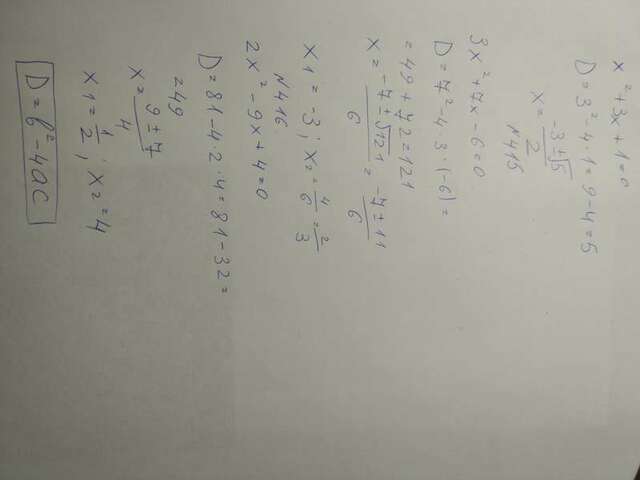 x²+3x+1=0
D=3²-4·1=9-4=5
x=(-3±√5)/2
№415
3x²+7x-6=0
D=7²-4·3·(-6)=
=49+72=121
x=(-7±√121)/6=(-7±11)/6
x1=-3; x2=4/6=2/3
№416
2x²-9x+4=0
D=81-4·2·4=81-32=
=49
x=(9±7)/4
x1=1/2; x2=4
D=b²-4ac